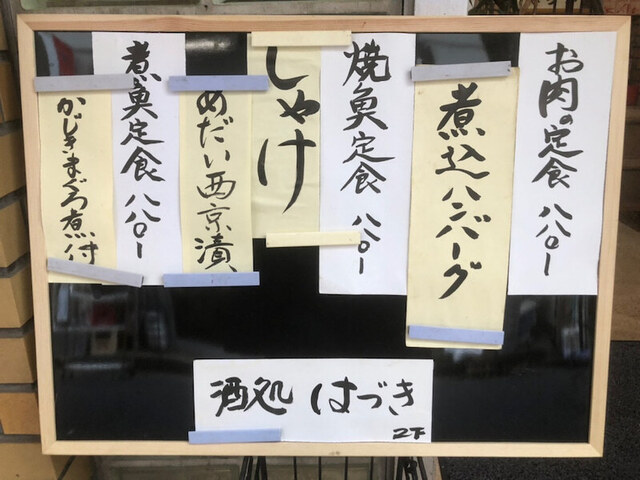 お肉の定食 八八〇ー
煮込ハンバーグ
焼魚定食 八八〇ー
しゃけ
めだい西京漬
煮魚定食 八八〇ー
かじきまぐろ煮付
酒処 はづき
2F